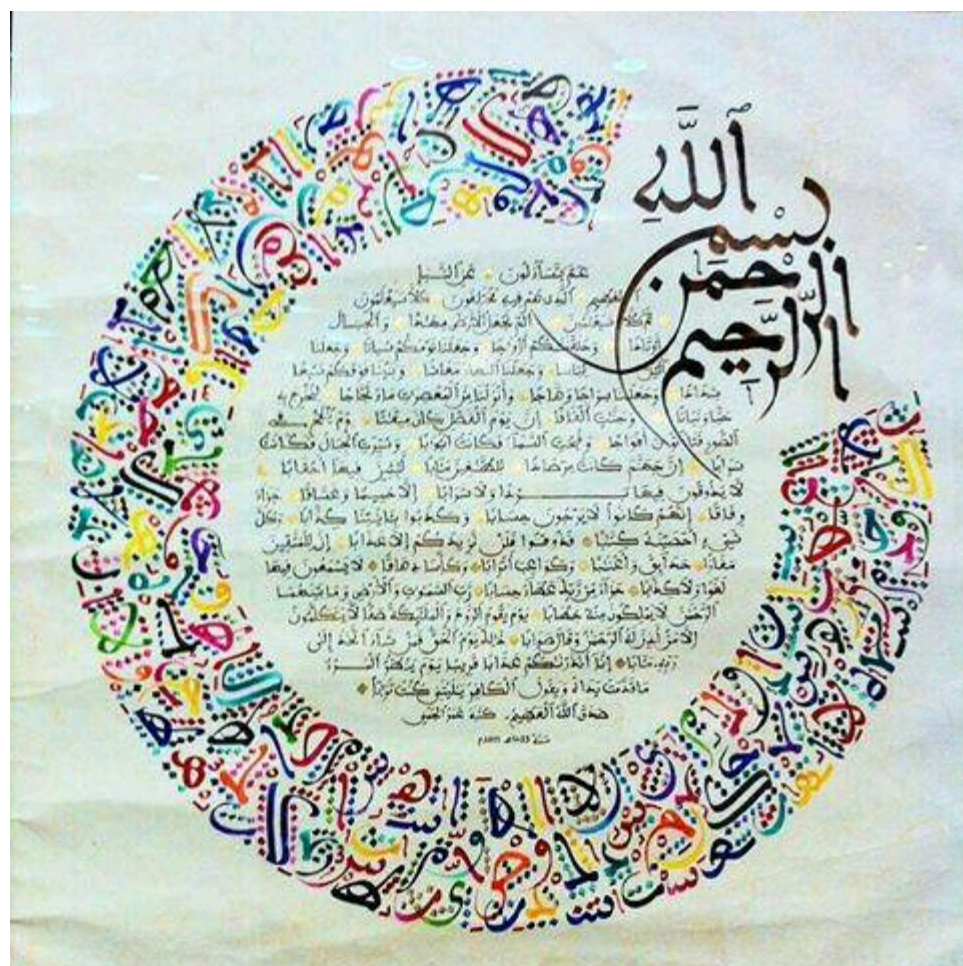 بِسْمِ اللَّهِ الرَّحْمَنِ الرَّحِيمِ
عم يتساءلون عن النبإ
العظيم الذي هم فيه مختلفون كلا سيعلمون
ثم كلا سيعلمون ألم نجعل الأرض مهدا والجبال
أوتادا وخلقنكم أزواجا وجعلنا نومكم سباتا وجعلنا
اليل لباسا وجعلنا النهار معاشا وبنينا فوقكم سبعا
شدادا وجعلنا سراجا وهاجا وأنزلنا من المعصرت ماء ثجاجا لنخرج به
حبا ونباتا وجنت ألفافا إن يوم الفصل كان ميقتا يوم ينفخ في
الصور فتأتون أفواجا وفتحت السماء فكانت أبوبا وسيرت الجبال فكانت
سرابا إن جهنم كانت مرصادا للطغين مئابا لبثين فيها أحقابا
لا يذوقون فيها بردا ولا شرابا إلا حميما وغساقا جزاء
وفاقا إنهم كانوا لا يرجون حسابا وكذبوا بئايتنا كذابا وكل
شيء أحصينه كتبا فذوقوا فلن نزيدكم إلا عذابا إن للمتقين
مفازا حدائق وأعنبا وكواعب أترابا وكأسا دهاقا لا يسمعون فيها
لغوا ولا كذابا جزاء من ربك عطاء حسابا رب السموت والأرض وما بينهما
الرحمن لا يملكون منه خطابا يوم يقوم الروح والملئكة صفا لا يتكلمون
إلا من أذن له الرحمن وقال صوابا ذلك اليوم الحق فمن شاء اتخذ إلى
ربه مئابا إنا أنذرنكم عذابا قريبا يوم ينظر المرء
ما قدمت يداه ويقول الكافر يليتني كنت تربا
صدق الله العظيم. كتبه عمر الجمني